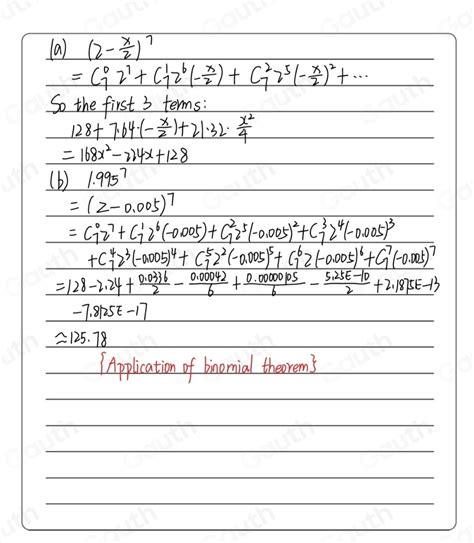 (a) (2-x/2)^7
= C₇⁰2⁷ + C₇¹2⁶(-x/2) + C₇²2⁵(-x/2)² + ...
So the first 3 terms:
128+ 7·64·(-x/2)+21·32· x²/4
= 168x²-224x+128
(b) 1.995⁷
= (2-0.005)⁷
= C₇⁰2⁷+C₇¹2⁶(-0.005)+C₇²2⁵(-0.005)²+C₇³2⁴(-0.005)³
+C₇⁴2³(-0.005)⁴+C₇⁵2²(-0.005)⁵+C₇⁶2(-0.005)⁶+C₇⁷(-0.005)⁷
=128-2.24+ 0.0336/2 - 0.00042/6 + 0.00000105/6 - 5.25E-10/2 +2.1875E-13
-7.8125E-17
≈125.78
{Application of binomial theorem}